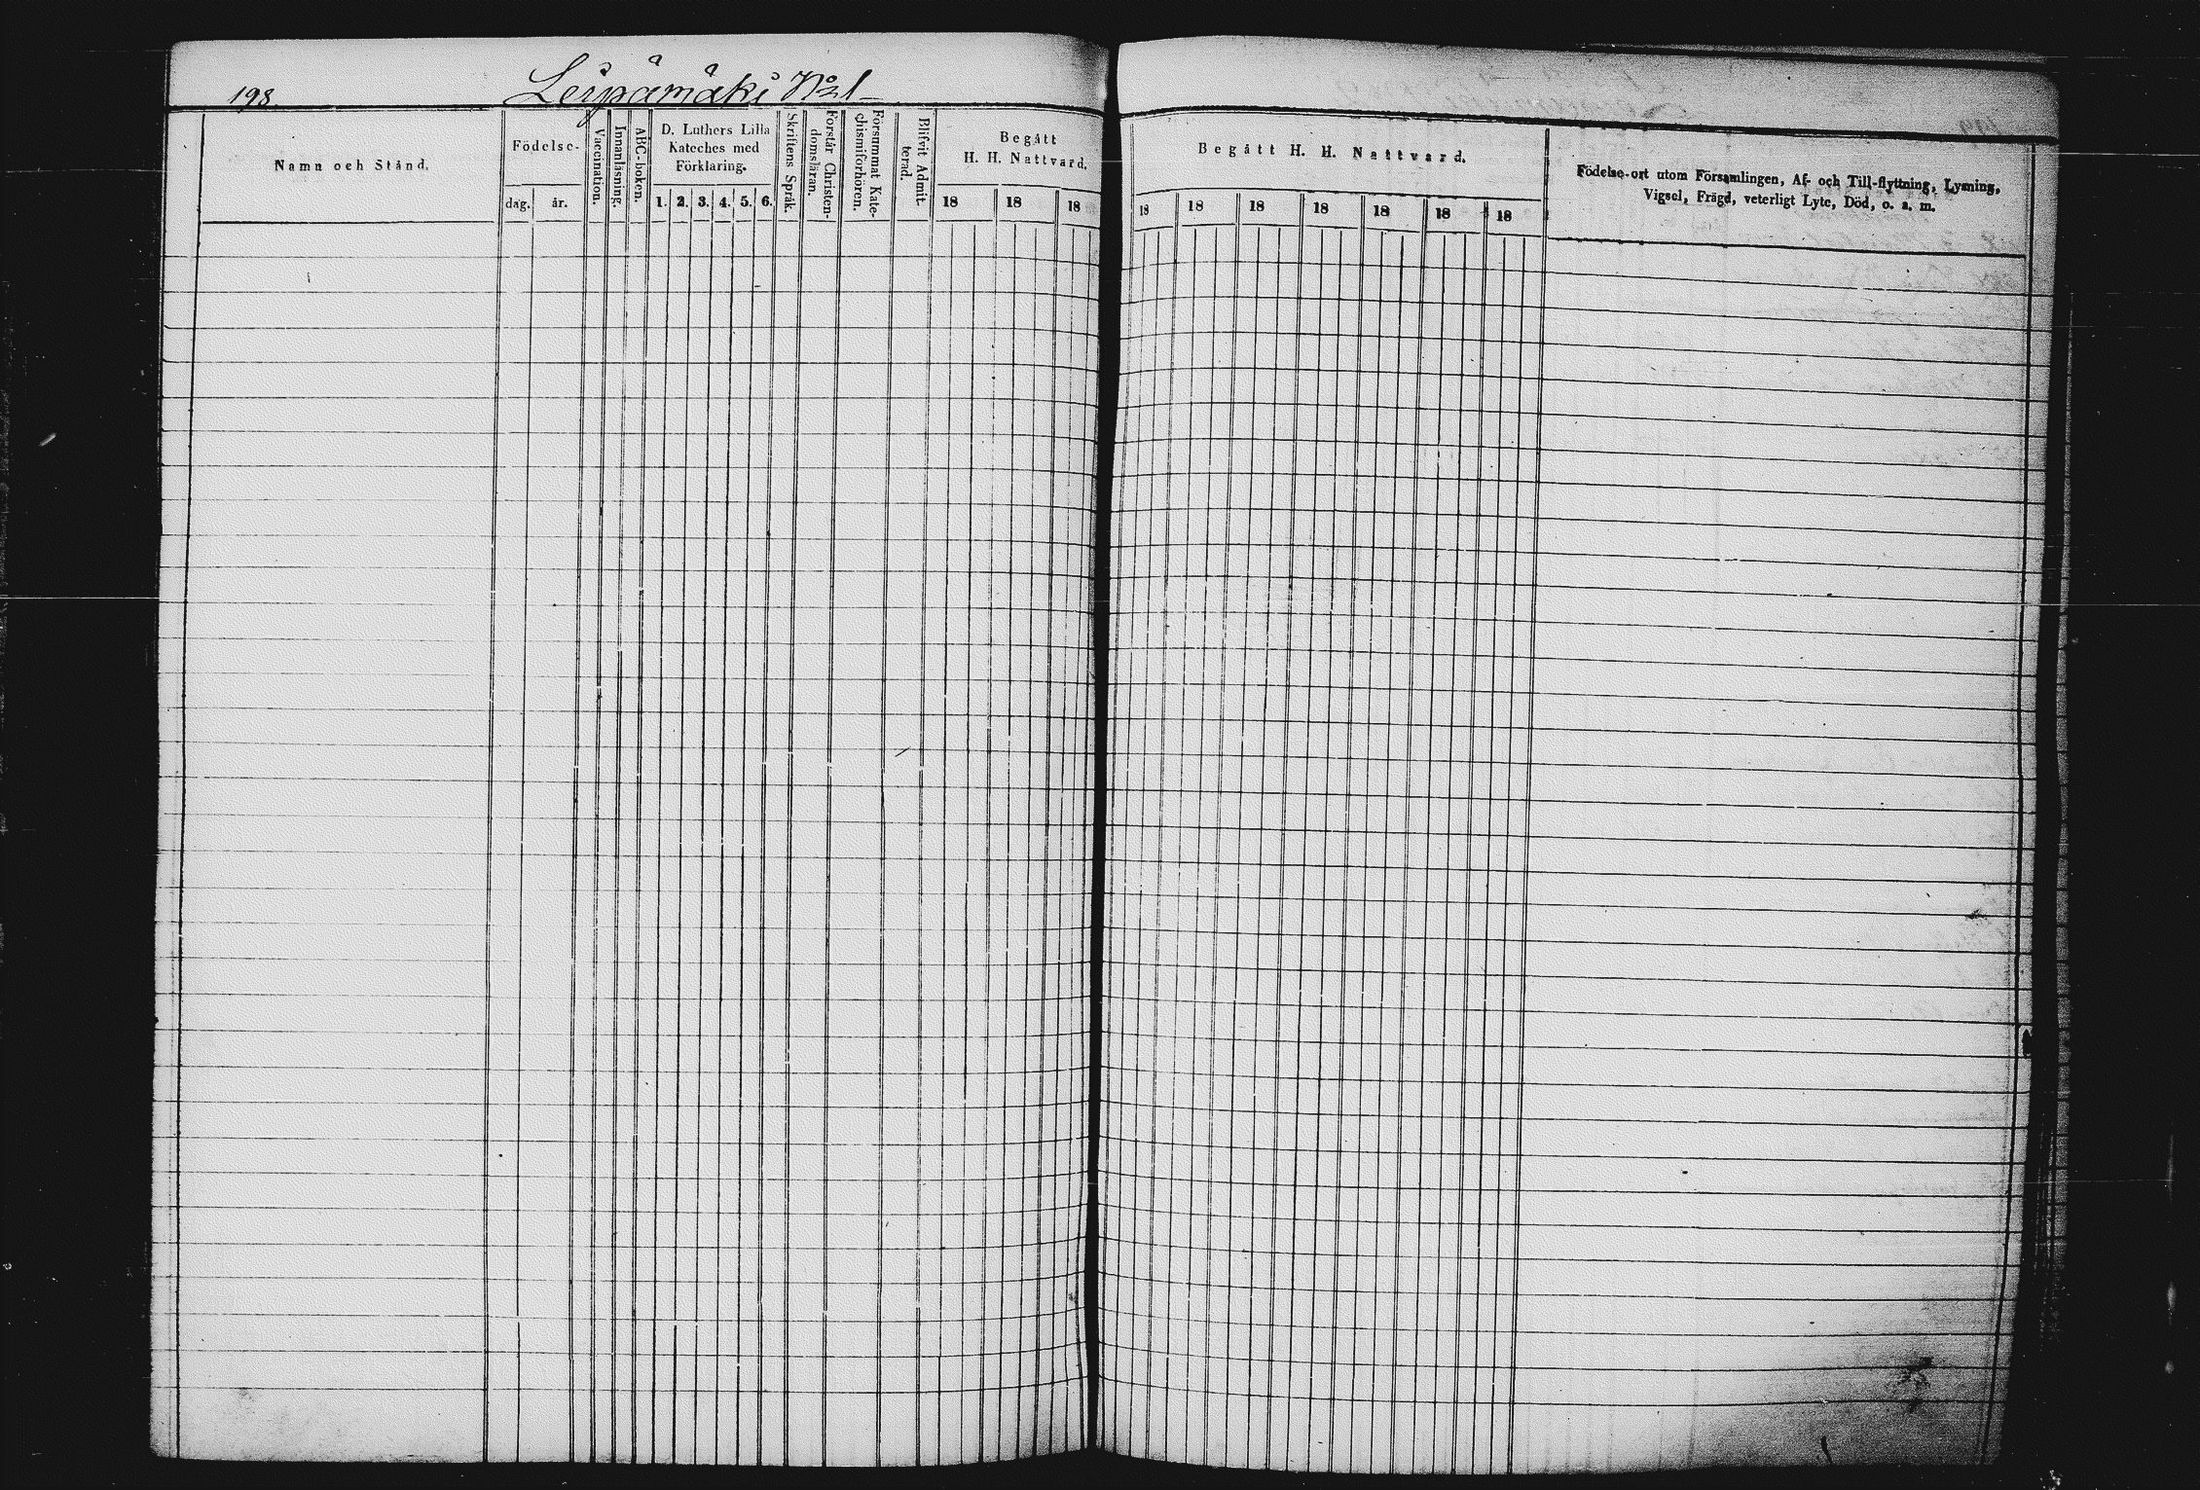 198
Leipämäki No 1
Namn och Stånd.
Födelse-
dag.
år.
Vaccination.
Innanläsning.
ABC-boken.
D. Luthers Lilla
Kateches med
Förklaring.
1. 2. 3. 4. 5. 6.
Skriftens Språk.
Förstår Christen-
domsläran.
Försummat Kate-
chismiförhören.
Blifvit Admit-
terad.
Begått
H. H. Nattvard.
18 18 18
Begått H. H. Nattvard.
18 18 18 18 18 18 18
Födelse-ort utom Församlingen, Af- och Till-flyttning, Lysning,
Vigsel, Frägd, veterligt Lyte, Död, o. s. m.